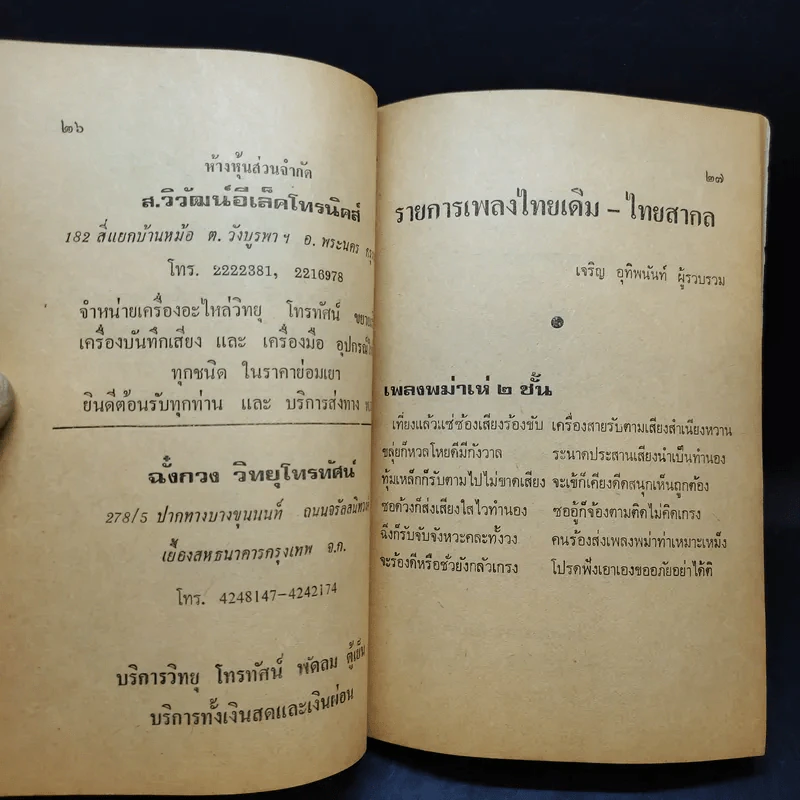 ๒๖
ห้างหุ้นส่วนจำกัด
ส.วิวัฒน์อีเล็คโทรนิคส์
182 สี่แยกบ้านหม้อ ต. วังบูรพา ฯ อ. พระนคร
โทร. 2222381, 2216978
จำหน่ายเครื่องอะไหล่วิทยุ โทรทัศน์
เครื่องบันทึกเสียง และ เครื่องมือ
ทุกชนิด ในราคาย่อมเยา
ยินดีต้อนรับทุกท่าน และ บริการส่งทาง
ฉั่งกวง วิทยุโทรทัศน์
278/5 ปากทางบางขุนนนท์
เยื้องสหธนาคารกรุงเทพ จ.ก.
โทร. 4248147-4242174
บริการวิทยุ โทรทัศน์ พัดลม ตู้เย็น
บริการทั้งเงินสดและเงินผ่อน
๒๗
รายการเพลงไทยเดิม – ไทยสากล
เจริญ อุทิพนันท์ ผู้รวบรวม
เพลงพม่าเห่ ๒ ชั้น
เที่ยงแล้วแซ่ซ้องเสียงร้องขับ เครื่องสายรับตามเสียงสำเนียงหวาน
ขลุ่ยก็หวลโหยดีมีกังวาล ระนาดประสานเสียงนำเป็นทำนอง
ทุ้มเหล็กก็รับตามไปไม่ขาดเสียง จะเข้ก็เคียงดีดสนุกเห็นถูกต้อง
ซอด้วงก็ส่งเสียงใสไวทำนอง ซออู้ก็จ้องตามติดไม่คิดเกรง
ฉิ่งก็รับจับจังหวะคละทั้งวง คนร้องส่งเพลงพม่าท่าเหมาะเหม็ง
จะร้องดีหรือชั่วยังกลัวเกรง โปรดฟังเอาเองขออภัยอย่าได้ติ